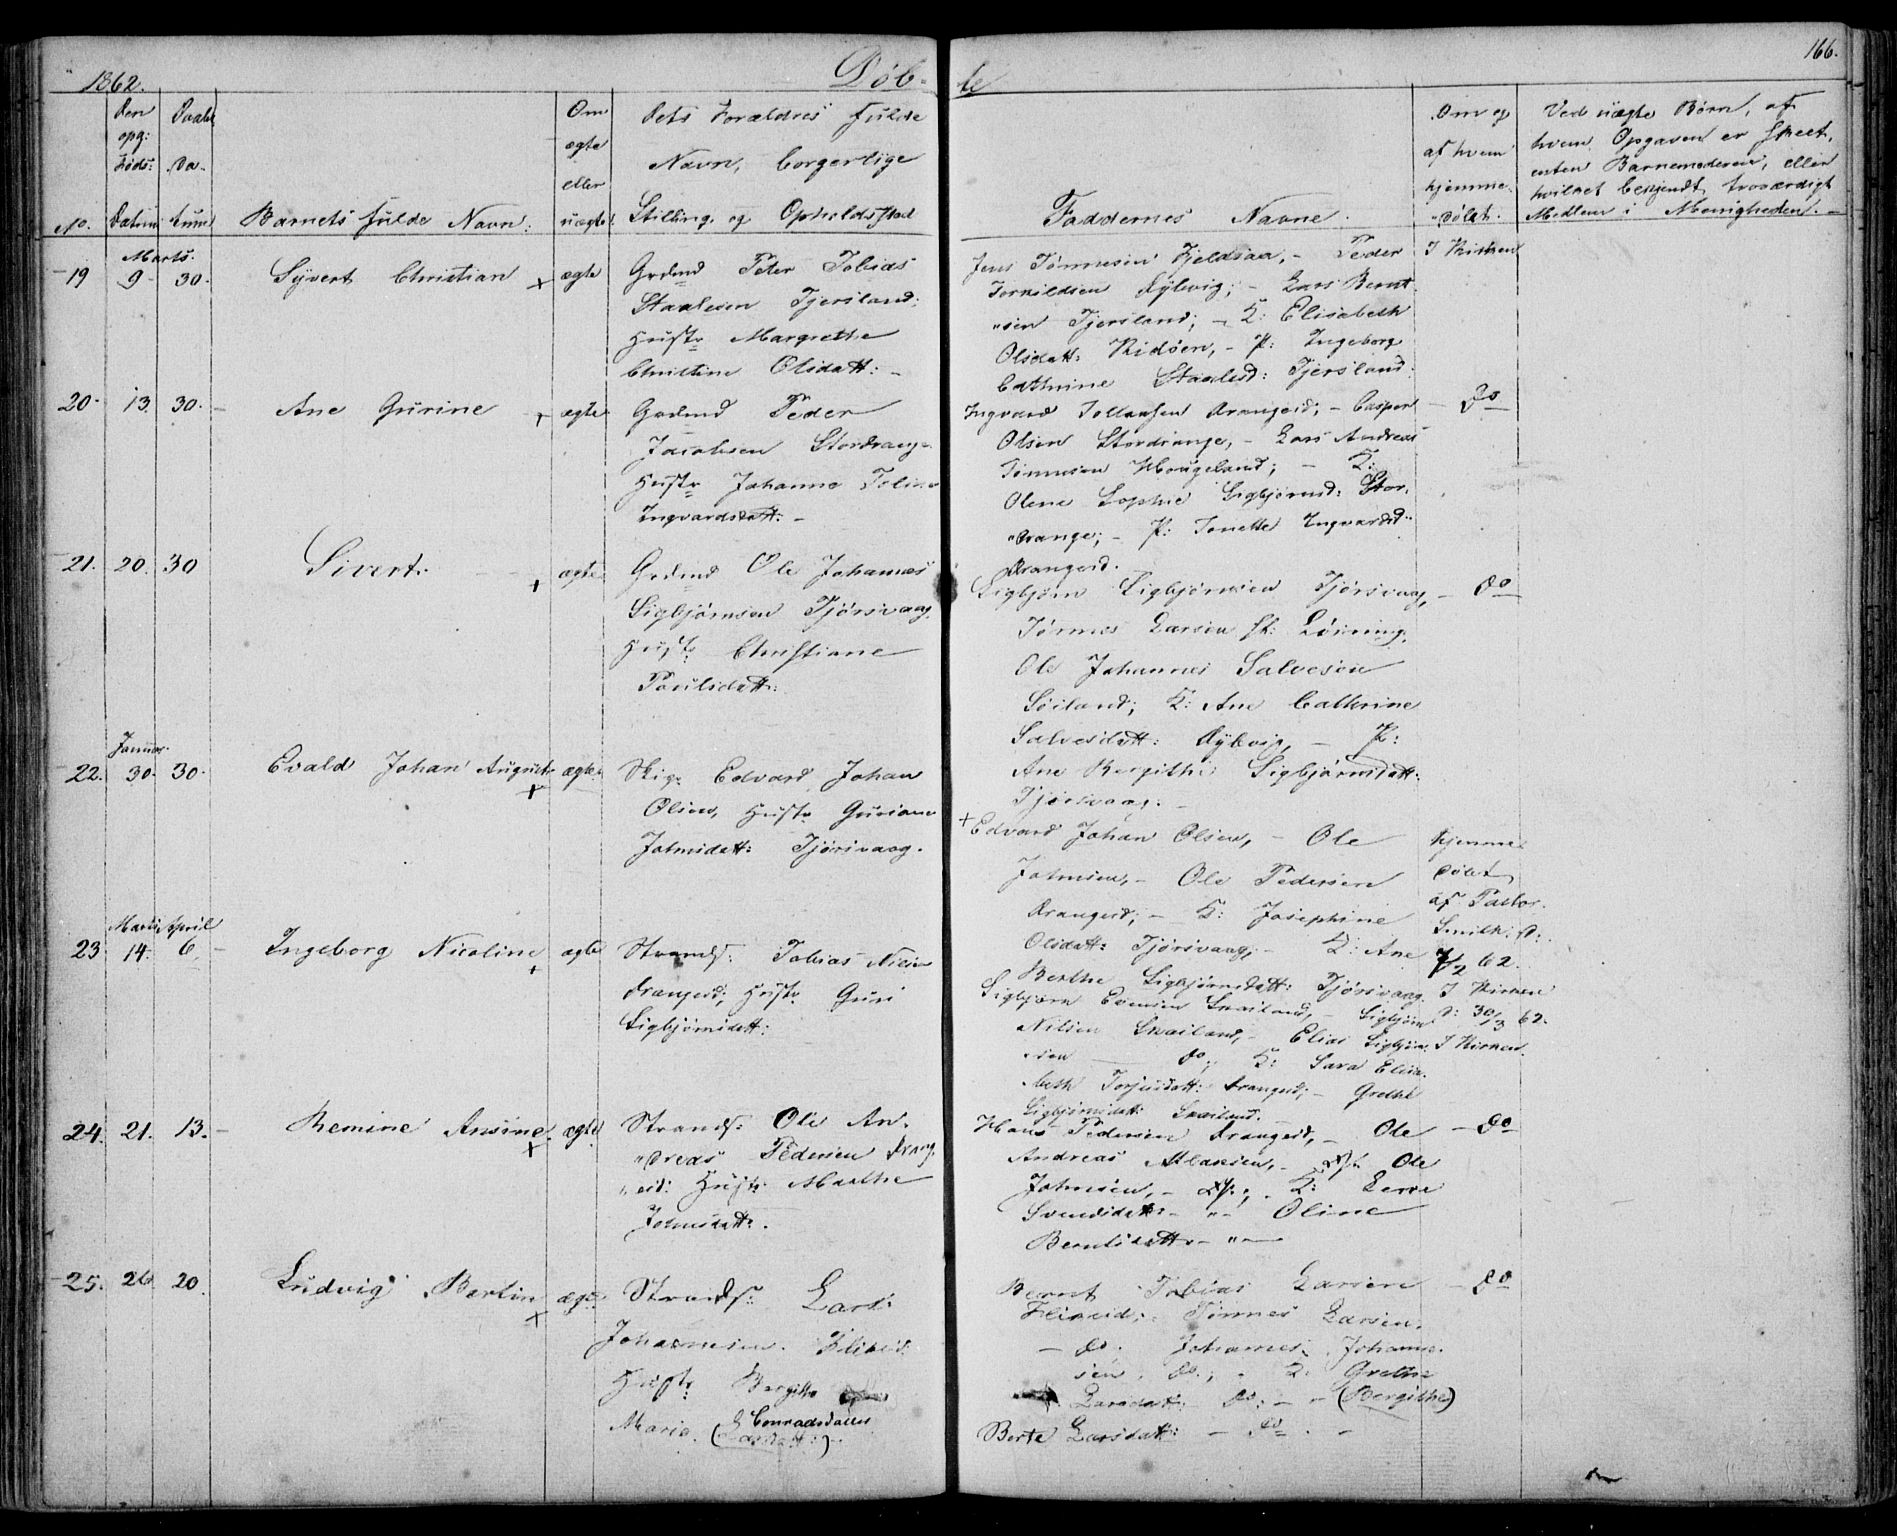 1862.
Døb-
te
166.
Den opg: Føds: Datum
Daabs Da- tum
No.
Barnets fulde Navn.
Om ægte eller uægte.
Dets Forældres fulde
Navn, borgerlige
Stilling og Opholdssted
Faddernes Navne.
Om og af hvem hjemme- "døbt.
Ved uægte Børn, af
hvem Opgaven er skeet,
enten Barnemoderen, eller
hvilket bekjendt, troværdigt
Medlem i Menigheden.
Marts.
19 9 30. Syvert Christian ægte
Grdmd Peter Tobias
Staalesen Tjersland;
Hustr Margrethe
Christine Olsdatt: -
Jens Tønnesen Fjeldsaa, - Peder
Torkildsen Rylevig; - Lars Bernt
"sen Tjersland; - K: Elisabeth
Olsdatt: Kidöen, - P: Ingeborg
Cathrine Staalesd: Tjersland.
I Kirken
20. 13. 30. Ane Gurine ægte
Grdmd Peder
Jacobsen Stordrange
Hustr Johanne Toline
Ingvardsdatt: -
Ingvard Tollagsen Drangeid; - Casper
Olsen Stordrange, - Lars Andreas
Tønnesen Hougeland; - K:
Olene Sophie Sigbjørnsd: Stor.
"drange; - P: Tonette Ingvardsd:
Drangeid.
Do
21. 20. 30 Sivert. ægte
Grdmd Ole Johannes
Sigbjørnsen Tjørsvaag,
Hustr: Christiane
Poulsdatt:
Sigbjørn Sigbjørnsen Tjørsvaag, - do
Tønnes Larsen
Ole Johannes Salvesen
Söiland; K: Ane Cathrine
Salvesdatt: Rylevig, - P:
Ane Bergithe Sigbjørnsdatt:
Tjørsvaag: -
Januar.
22. 30. 30. Evald Johan August ægte
Edvard Johan
Olsen, Hustr Guriane
Johnsdatt: Tjørsvaag.
+ Edvard Johan Olsen, - Ole
Johnsen, - Ole Pedersen
Drangeid; - K: Josephine
Olsdatt: Tjørsvaag, - K: Ane
Berthe Sigbjørnsdatt: Tjørsvaag.
Hjemme
døbt
af Pastor
Smith. d:
7/2 62.
I Kirken
d: 30/3 62.
Marts April
23 14. 6. Ingeborg Nicoline ægte
Strands: Tobias Nilsen
Drangeid; Hustr Guri
Sigbjørnsdatt:
Sigbjørn Evensen Skailand, - Sigbjørn
Nilsen Skailand, - Elias Sigbjørn
"sen do; K: Sara Elisa
"beth Torjusdatt: Drangeid; - Grethe
Sigbjørnsdatt: Skailand.
I Kirken.
24. 21. 13. Remine Ansine. ægte
Strands: Ole An.
"dreas Pedersen Drang
"eid: Hustr: Marthe
Johnsdatt:.
Hans Pedersen Drangeid, - Ole - do
Andreas Ole
Johnsen, - K:
Svendsdatt: - "- Oline
Berntsdatt. - " -
25. 26. 20. Ludvig Bertin ægte
Strands: Lars
Johannesen Fliked.
Hustr: Bergitha
Maria. (Conradsdatter
Larsdatt:)
Bernt Tobias Larsen - do
Flikeid; Tønnes Larsen.
- do. Johannes Johanne.
sen, do., K: Grethe
Larsdatt: do: - - (Bergithe)
Berte Larsdatt: - do. -